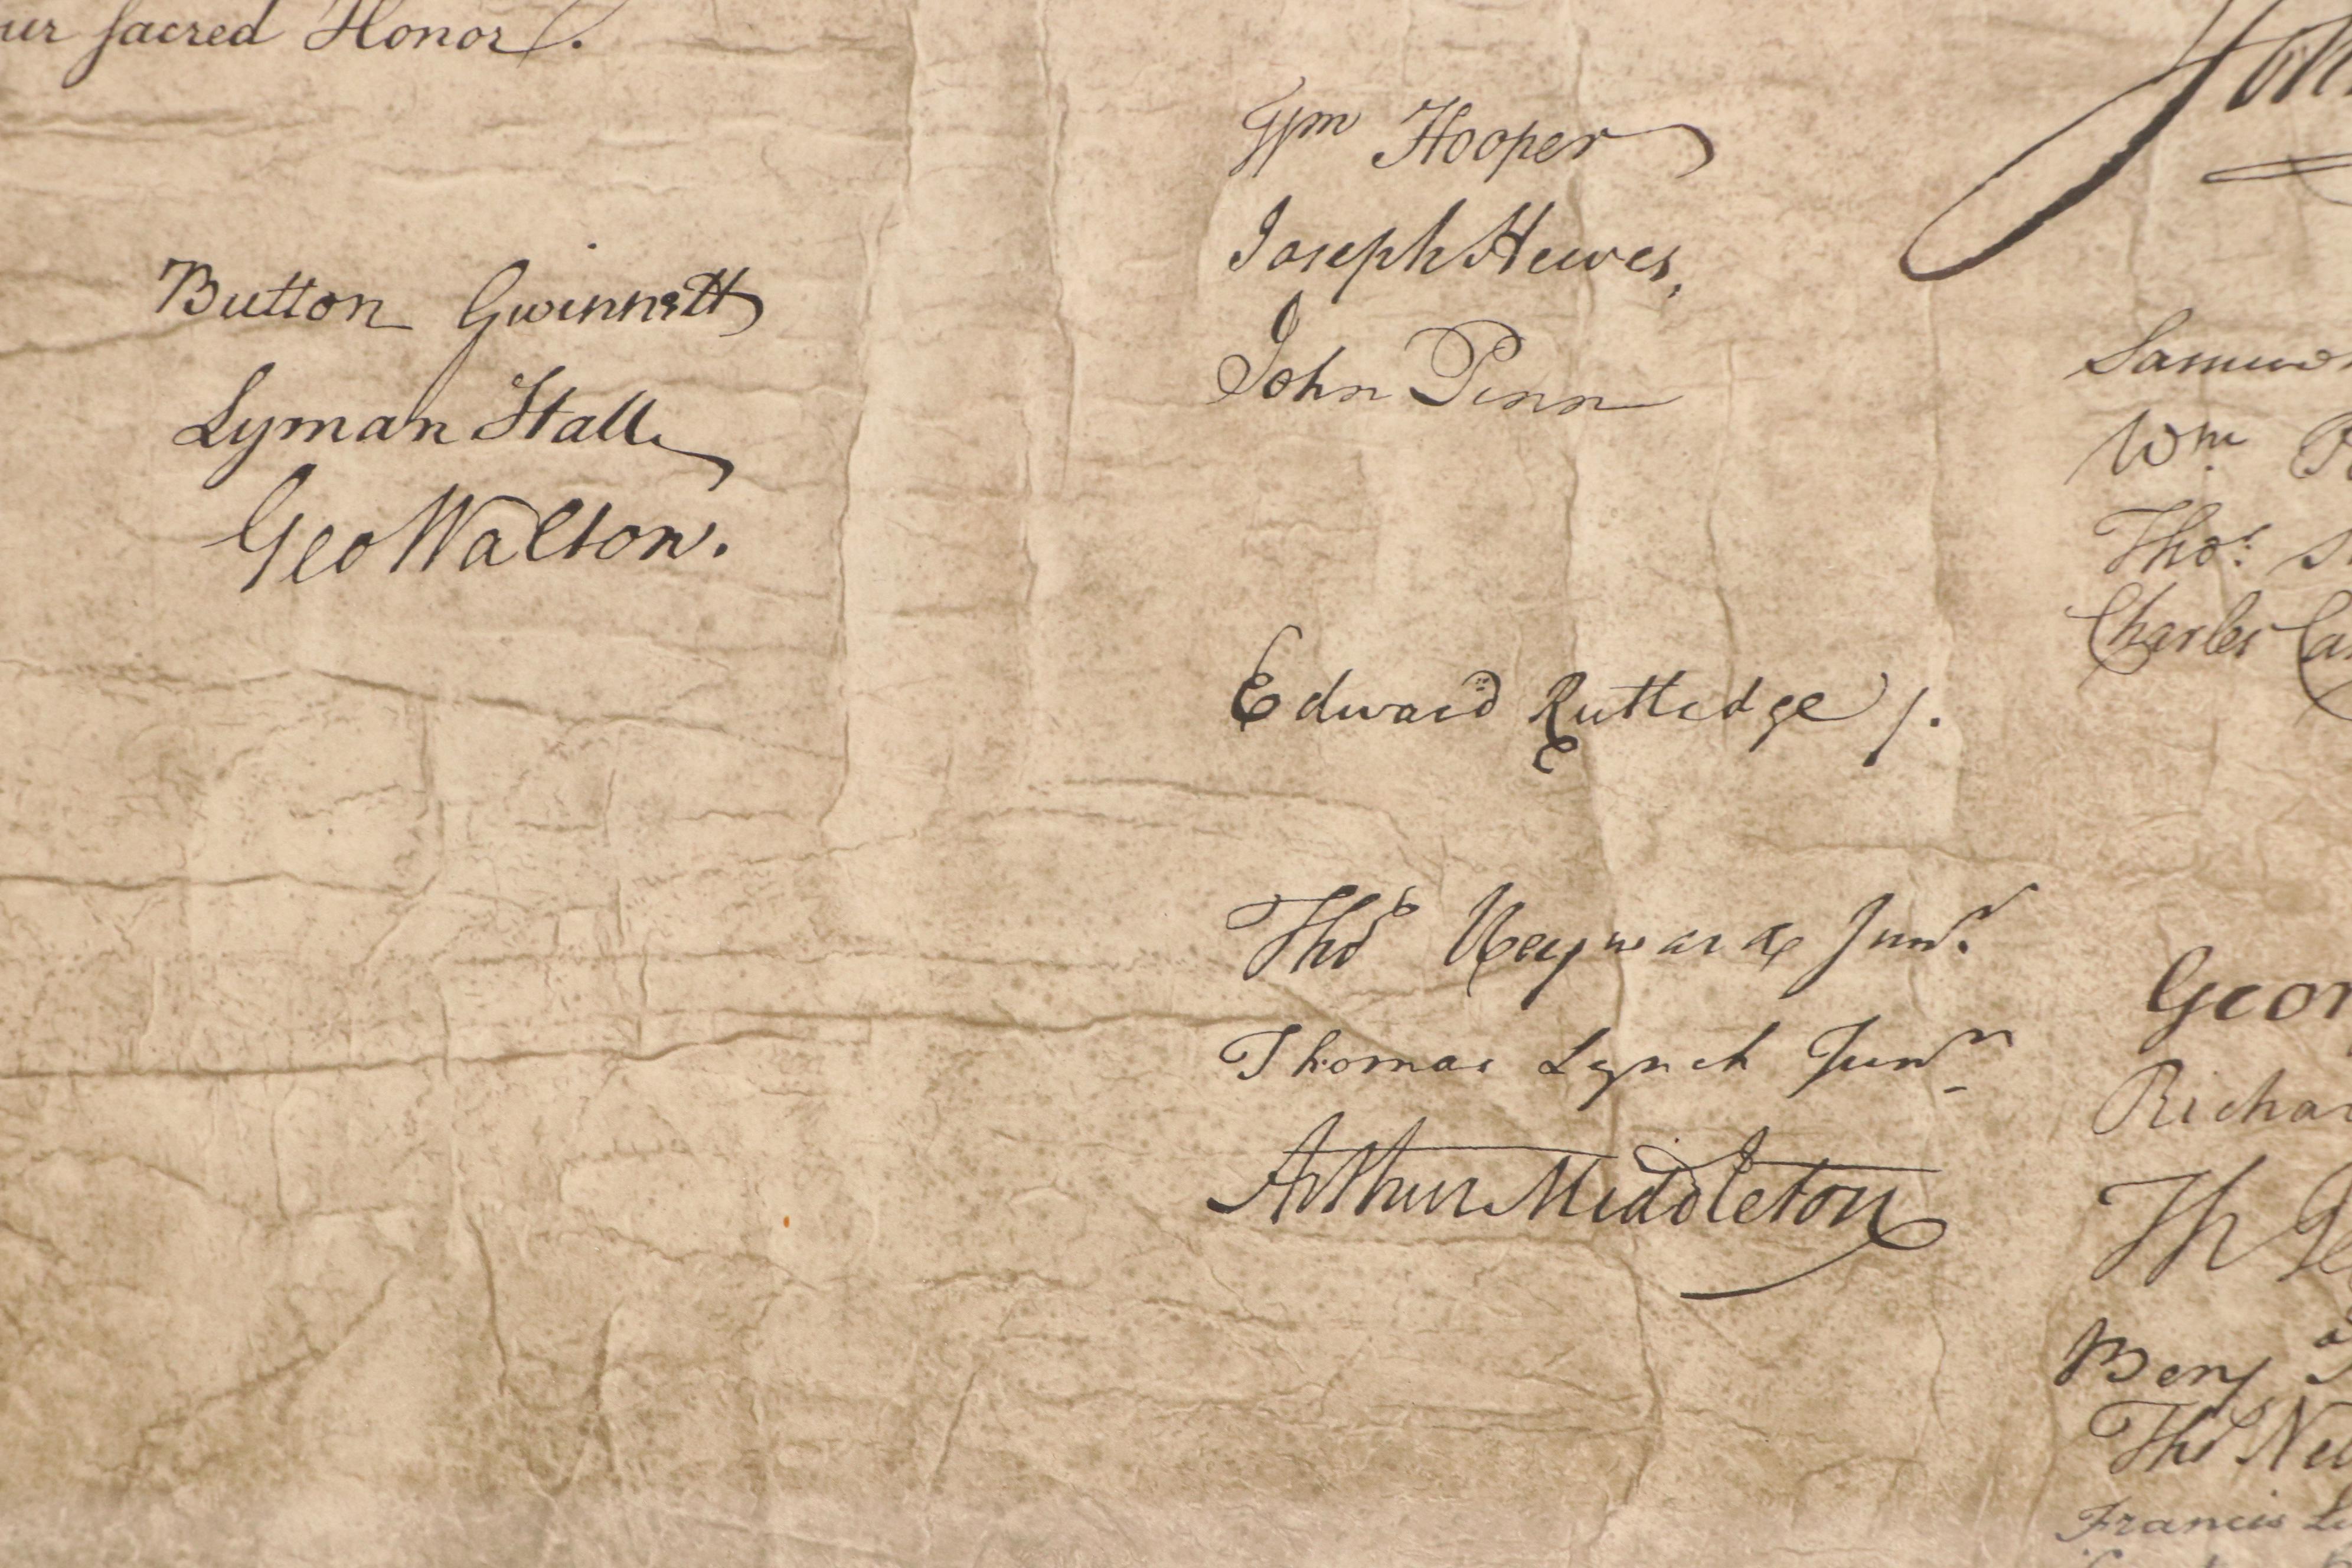 ur sacred Honor.
Button Gwinnett
Lyman Hall
Geo Walton.
Wm Hooper
Joseph Hewes,
John Penn
Edward Rutledge /.
Thos Heyward Junr.
Thomas Lynch Junr.
Arthur Middleton
Joh
Samue
Wm P
Thos. S
Charles Ca
Geor
Richa
Th Je
Benj
Thos Ne
Francis Li